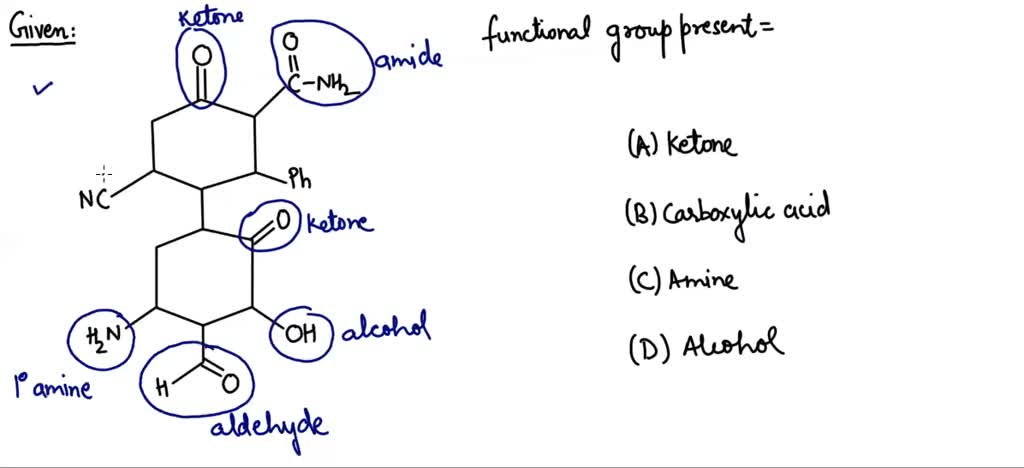 Given:
ketone
functional group present=
O
O
C-NH2
amide
(A) Ketone
NC
Ph
(B) Carboxylic acid
O
ketone
(C) Amine
H2N
OH
alcohol
(D) Alcohol
1° amine
H
O
aldehyde